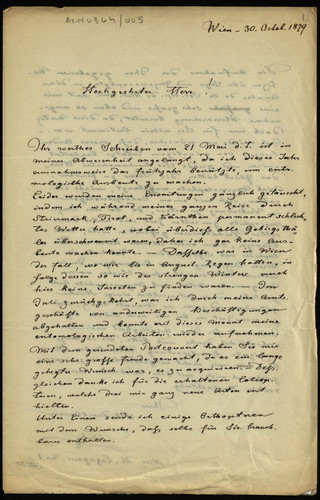 ACN0364/005
Wien – 30. Octob. 1879
Hochgeehrter Herr!
Ihr werthes Schreiben vom 21 Mai d. J. ist in
meiner Abwesenheit angelangt, da ich dieses Jahr
ausnahmsweise das Frühjahr benützte, um ento-
mologische Ausbeute zu machen.
Leider wurden meine Erwartungen gänzlich getäuscht,
indem ich während meiner ganzen Reise durch
Steiermark, Tirol, und Kärnthen permanent schlech-
tes Wetter hatte, wobei überdiess alle Gebirgsthä-
ler überschwemmt waren, daher ich gar keine Aus-
beute machen konnte. – Dasselbe war in Wien
der Fall, wo wir bis in August Regen hatten, in
Folge dessen so wie des strengen Winters auch
hier keine Insecten zu finden waren. – Im
Juli zurückgekehrt, war ich durch meine Amts-
geschäfte von anderweitigen Beschäftigungen
abgehalten und konnte erst dieses Monat meine
entomologischen Arbeiten wieder aufnehmen.
Mit dem gesendeten
eine sehr grosse Freude gemacht, da es ein lange
gehegter Wunsch war, es zu acquiriren. – Dess-
gleichen danke ich für die erhaltenen
welche drei mir ganz neue Arten ent-
hielten.
Unter Einem sende ich einige Orthopteren
mit dem Wunsche, dass selbe für Sie brauch-
bares enthalten.